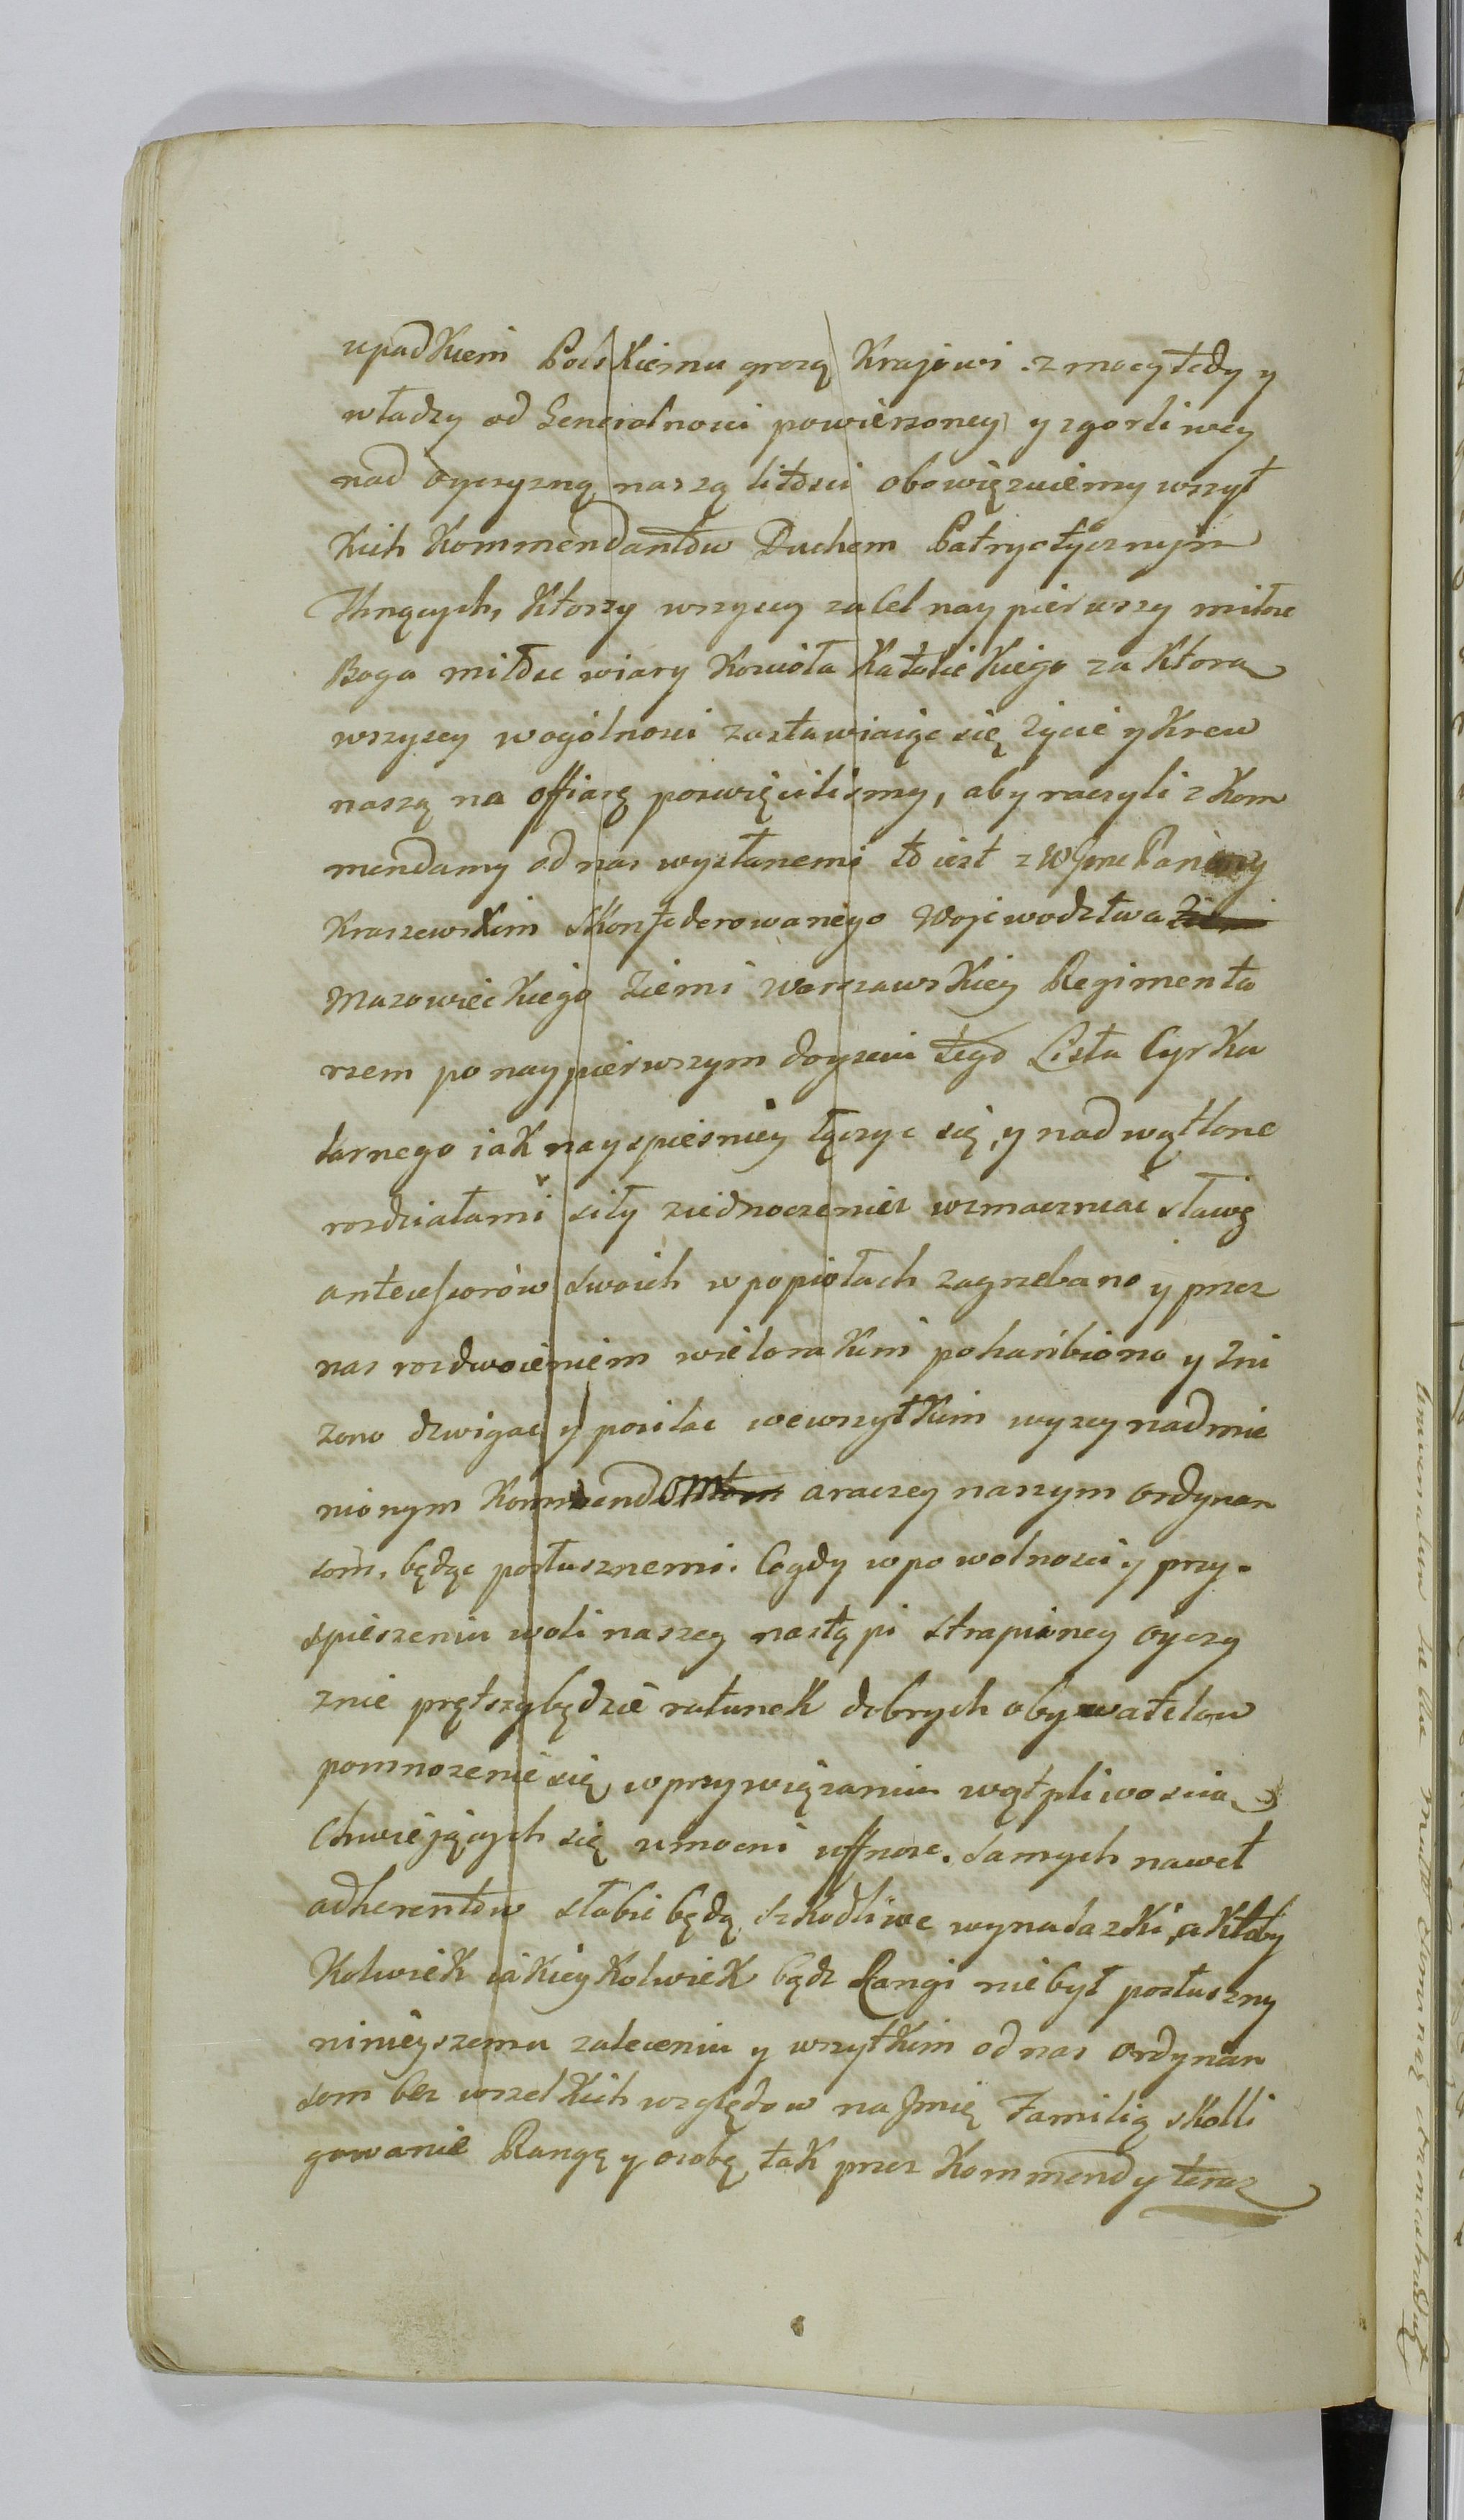 upadkiem Polskiemu grozą Krajowi. z mocy tedy y
władzy od Generalnosci powierzoney y zgorliwey
nad oyczyzną naszą litosci obowięzuiemy wszyt
kich Kommendantow Duchem Patryotycznym
Tknących, Ktorzy wszyscy za Cel naypierwszy miłosc
Boga miłosc wiary Koscioła Katolickiego za Ktorą
wszyscy wogolnosci zastawiaiąc się życie y Krew
naszą na offiarę poswięcilismy, aby raczyli z Kom
mendamy od nas wysłanemi to iest z WJmc Panem
Kraszewskim Skonfederowanego Wojewodztwa
Mazowieckiego Ziemi Warszawskiey Regimenta
rzem po naypierwszym doyzciu tego Listu Cyrku
larnego iak nayspieszniey łączyc się, y nadwątlone
rozdziałami siły ziednoczenie wzmacniac sławę
antecessorów swoich w popiołach zagrzebano y przez
nas rozdwoieniem wielorakim pohańbiono y zni
żono dzwigac y posilac wewszytkim wyzey nadmie
nionym Kommend araczey naszym ordynan
som, będąc posłusznemi. Cogdy wpowolnosci y przy-
spieszeniu woli naszey nastąpi strapioney oyczy
znie prętszybędzie ratunek dobrych obywatelow
pomnozenie się w przywięzaniu wątpliwoscią
Chwiejących się umocni uffnosc. samych nawet
adherentow słabie będą szkodliwe wynadazki, a ktoby
Kolwiek iakieykolwiek bądz Rangi niebył posłuszny
ninieyszemu zaleceniu y wszytkim od nas ordynan
som bez wszelkich względow na Jmię Familią skolli
gowanie Rangę y osobę tak przez Kommendy teraz